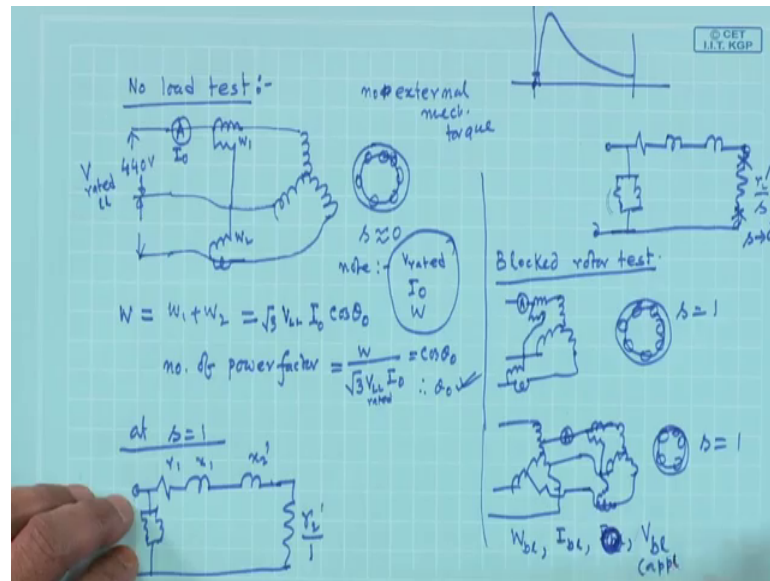 © CET
I.I.T. KGP
No load test :-
no external
mech.
torque
A
I₀
W₁
V rated LL
440V
W₂
s ≈ 0
note :-
V rated
I₀
W
W = W₁ + W₂ = √3 V_LL I₀ cosθ₀
no. of power factor = W / √3 V_LL rated I₀ = cosθ₀
∴ θ₀ ✓
at s = 1
r₁ x₁ x₂'
r₂' / 1
r₂' / s
Blocked rotor test.
A
s = 1
A
s = 1
W_bl, I_bl, V_bl
(appl